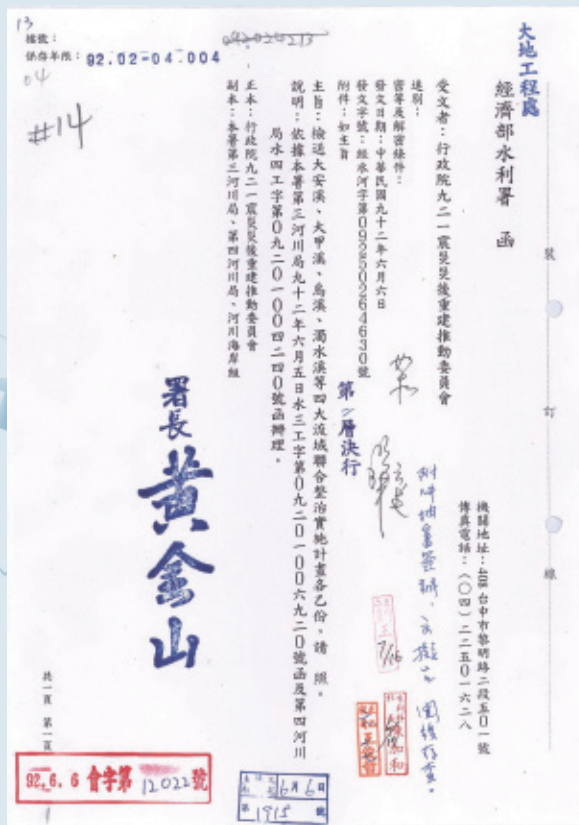 13
檔號：
保存年限：92.02-04.004
04
#14
大地工程處
經濟部水利署 函
機關地址：408台中市黎明路二段五０一號
傳真電話：（０四）二二五０一六二八
受文者：行政院九二一震災災後重建推動委員會
速別：
密等及解密條件：
發文日期：中華民國九十二年六月六日
發文字號：經水河字第09250264630號
附件：如主旨
第二層決行
主旨：檢送大安溪、大甲溪、烏溪、濁水溪等四大流域聯合整治實施計畫各乙份，請　照。
說明：依據本署第三河川局九十二年六月五日水三工字第０九二０一００六九二０號函及第四河川
局水四工字第０九二０一００四二四０號函辦理。
正本：行政院九二一震災災後重建推動委員會
副本：本署第三河川局、第四河川局、河川海岸組
署長 黃金山
裝
訂
線
共一頁 第一頁
92.6.6 會字第12022號
6月6日
第1915號